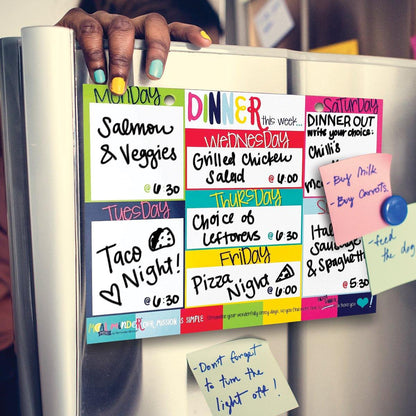 MONDAY
Salmon
& Veggies
@ 6:30
TUESDAY
Taco
Night!
@ 6:30
DINNER this week...
WEDNESDAY
Grilled Chicken
Salad @ 6:00
THURSDAY
Choice of
leftovers @ 6:30
FRIDAY
Pizza
Night @ 6:30
SATURDAY
DINNER OUT
write your choice:
Chilli's
@ 5:30
& Spaghetti
- Buy Milk
- Buy Carrots.
- feed
the dog
- Don't forget
to turn the
light off!
MISSION IS SIMPLE